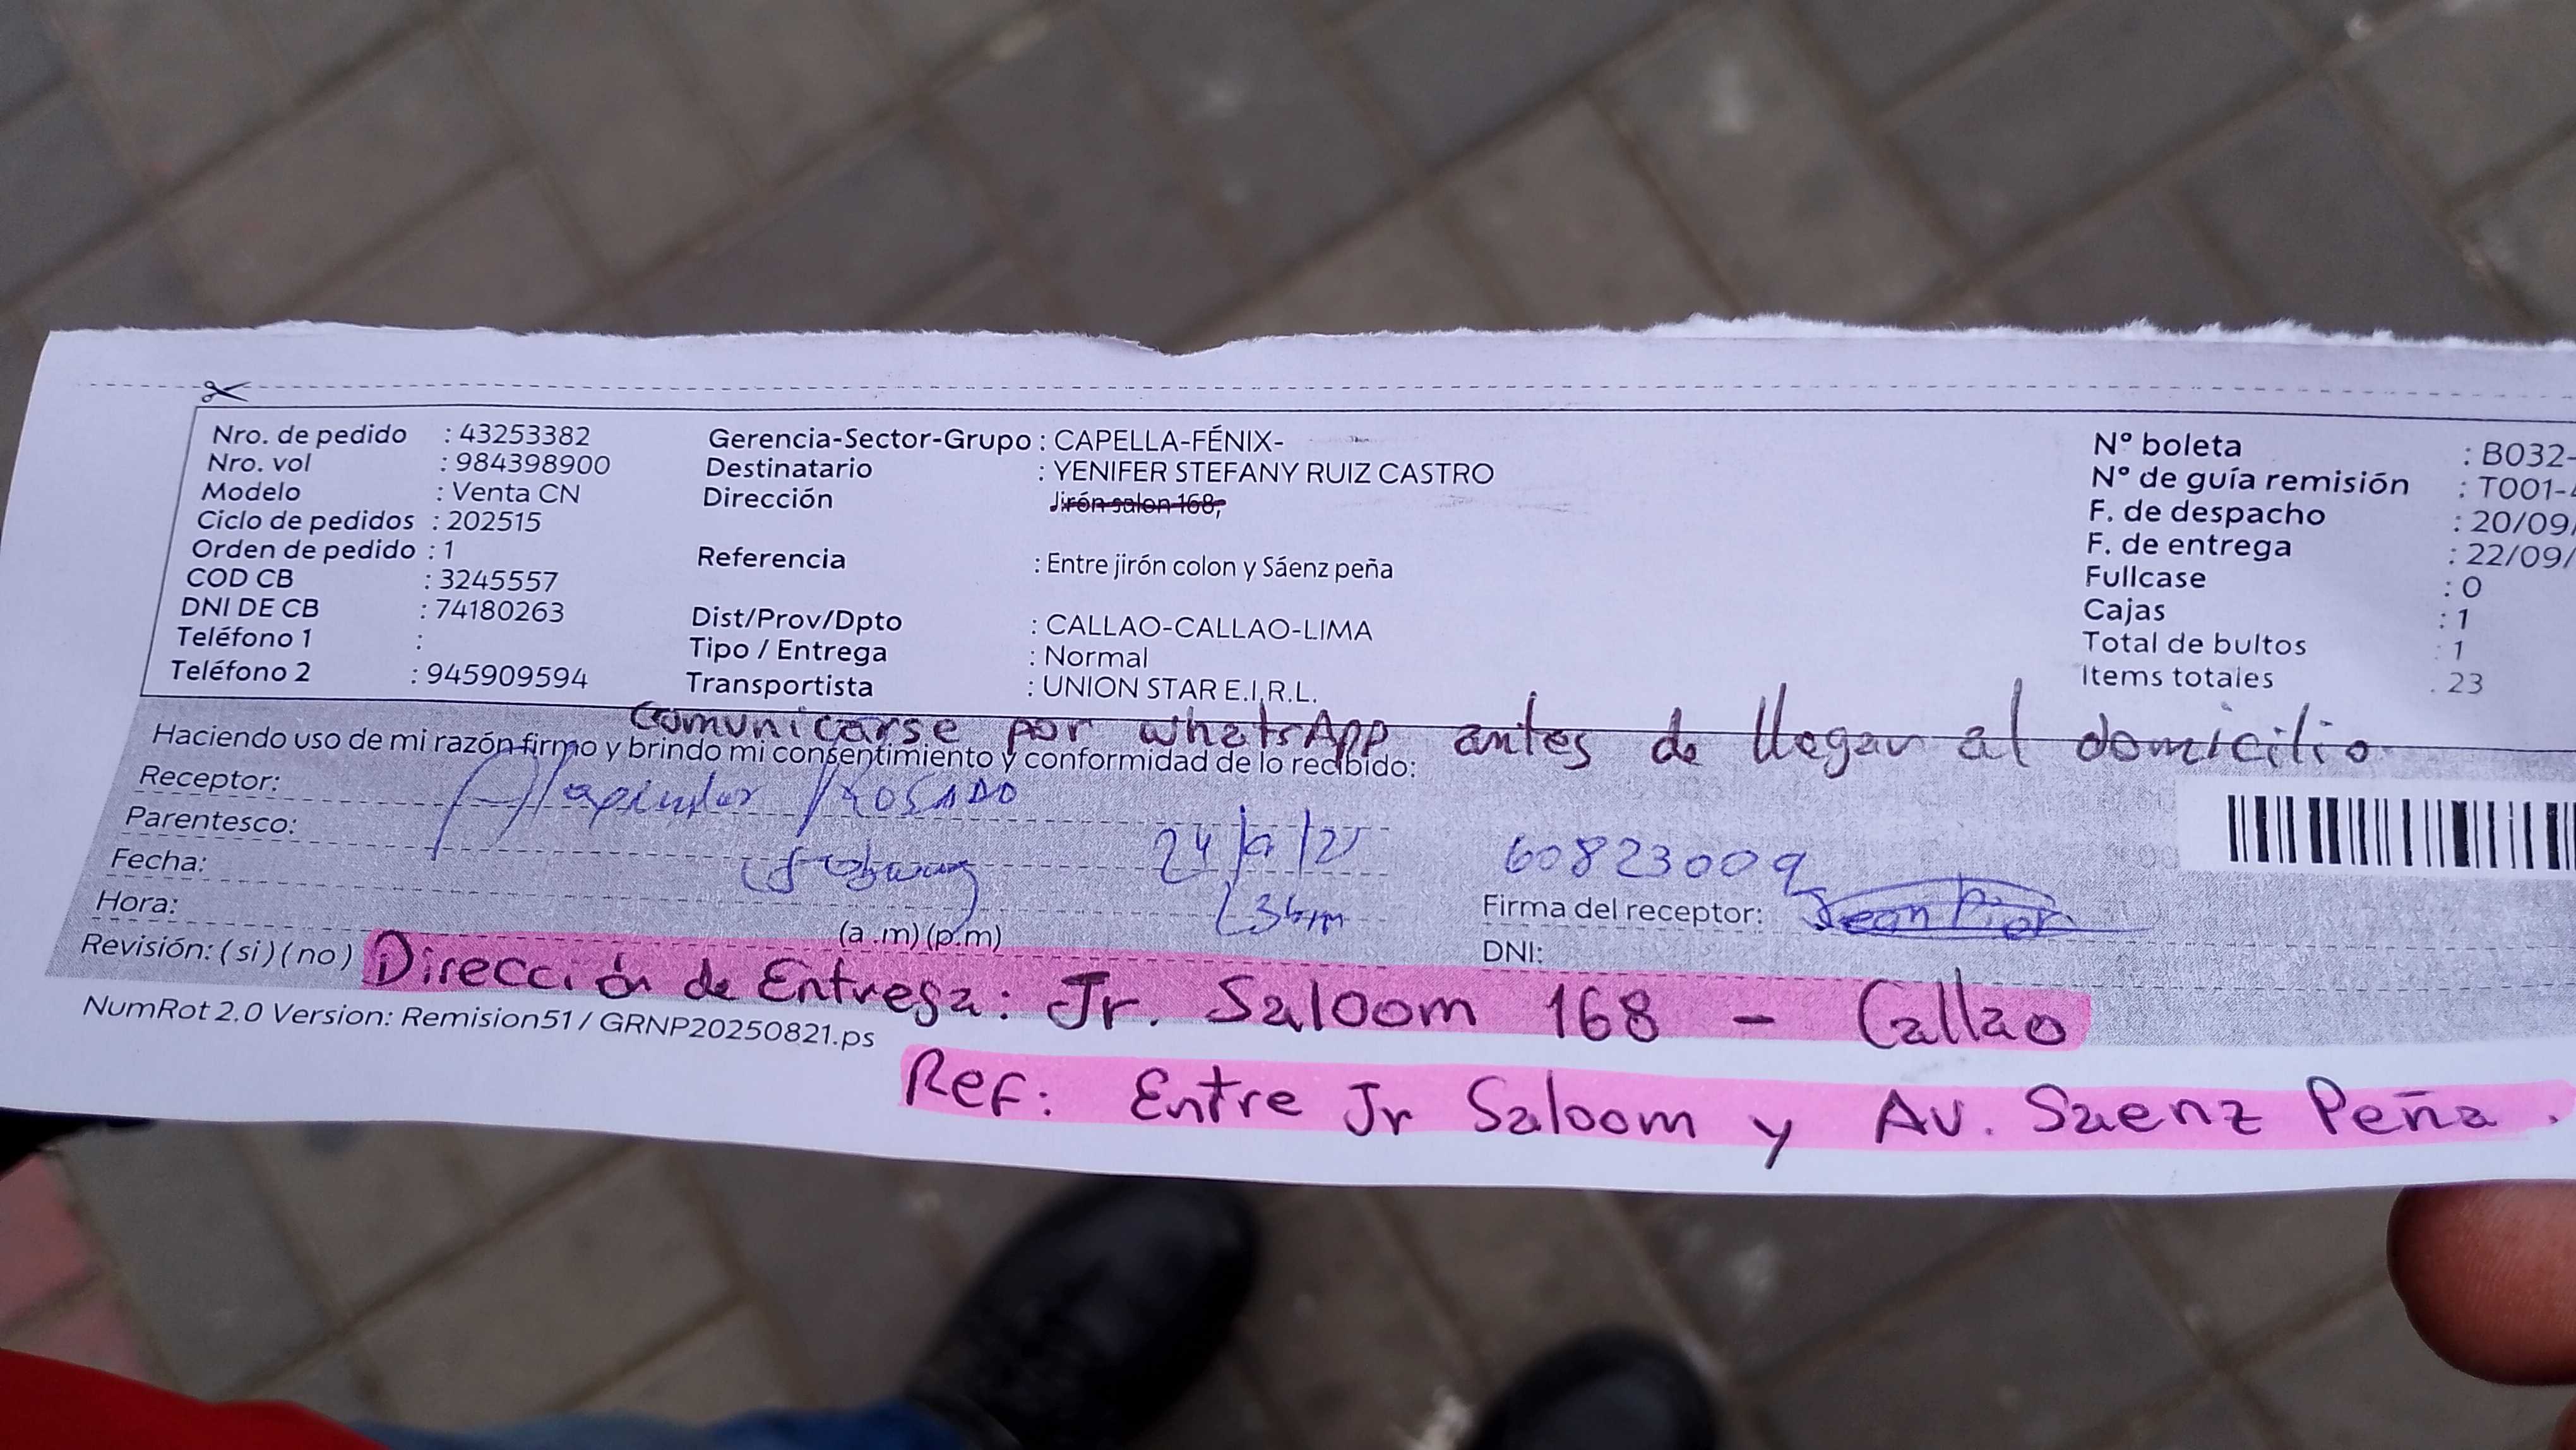 Nro. de pedido : 43253382
Nro. vol : 984398900
Modelo : Venta CN
Ciclo de pedidos : 202515
Orden de pedido : 1
COD CB : 3245557
DNI DE CB : 74180263
Teléfono 1 :
Teléfono 2 : 945909594
Gerencia-Sector-Grupo : CAPELLA-FÉNIX-
Destinatario : YENIFER STEFANY RUIZ CASTRO
Dirección Jirón salon 168,
Referencia : Entre jirón colon y Sáenz peña
Dist/Prov/Dpto : CALLAO-CALLAO-LIMA
Tipo / Entrega : Normal
Transportista : UNION STAR E.I.R.L.
N° boleta : B032-
N° de guía remisión : T001-
F. de despacho : 20/09/
F. de entrega : 22/09/
Fullcase : 0
Cajas : 1
Total de bultos : 1
Items totales : 23
Comunicarse por whatsApp antes de llegar al domicilio
Haciendo uso de mi razón firmo y brindo mi consentimiento y conformidad de lo recibido:
Receptor: ROSADO
Parentesco:
Fecha:
Hora: (a.m)(p.m)
60823009
Firma del receptor:
DNI:
Revisión: (si) (no)
Dirección de Entrega: Jr. Saloom 168 - Callao
NumRot 2.0 Version: Remision51 / GRNP20250821.ps
Ref: Entre Jr Saloom y Av. Saenz Peña.